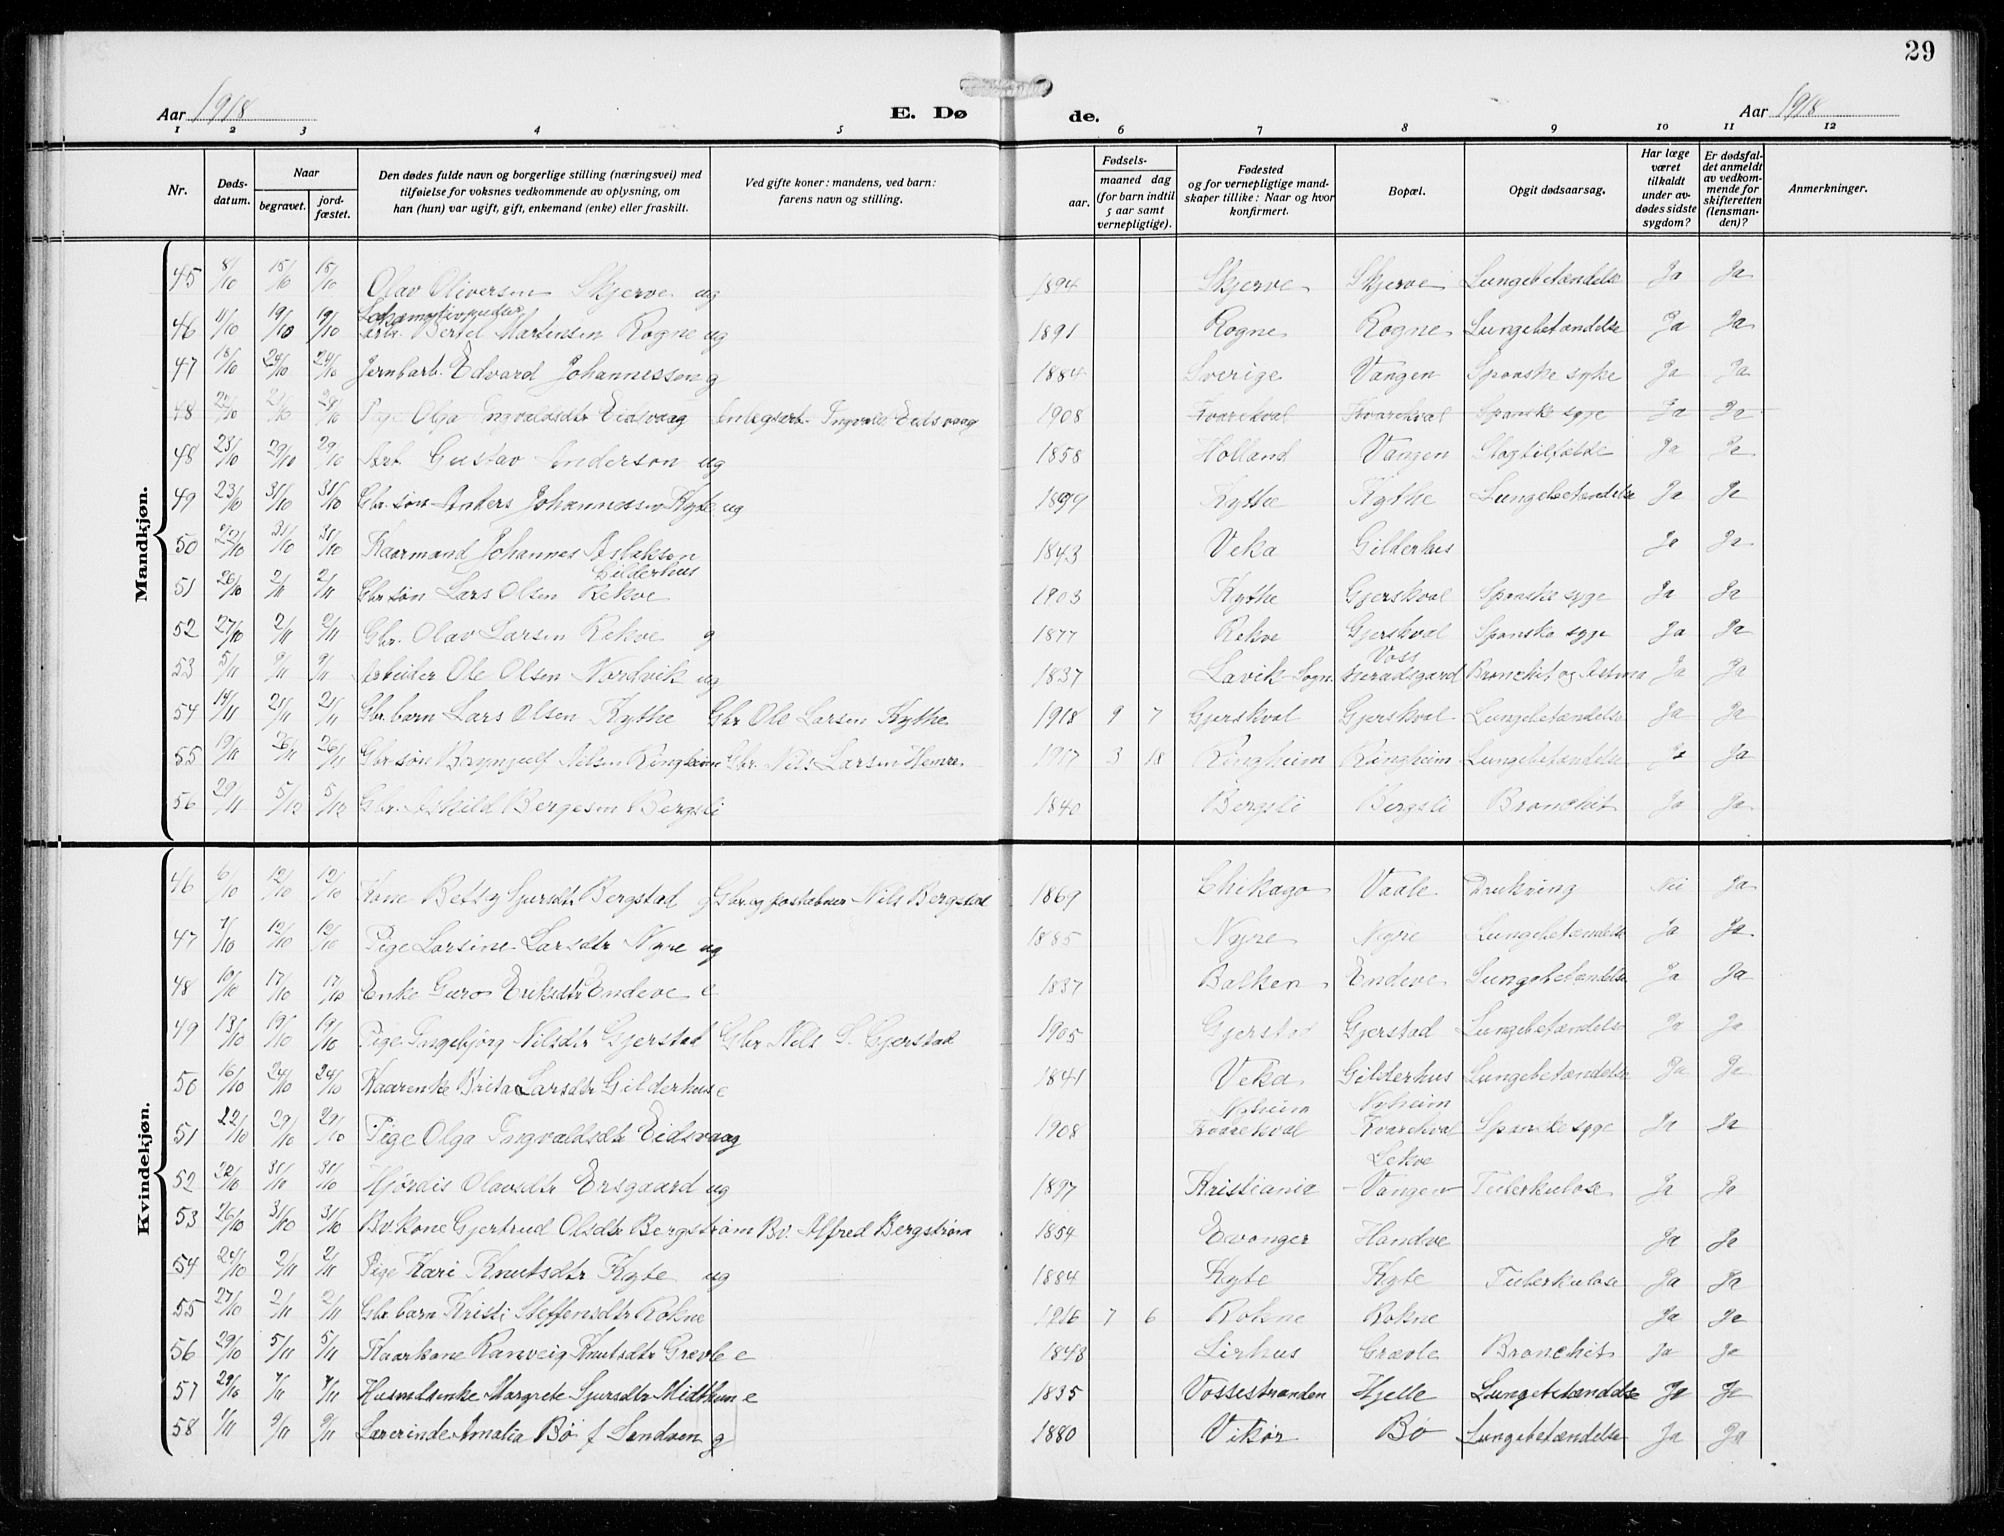 29
Aar 1918
E. Døde.
Aar 1918
1 2 3 4 5 6 7 8 9 10 11 12
Nr. | Døds-datum. | Naar begravet. | jord-fæstet. | Den dødes fulde navn og borgerlige stilling (næringsvei) med tilføielse for voksnes vedkommende av oplysning, om han (hun) var ugift, gift, enkemand (enke) eller fraskilt. | Ved gifte koner: mandens, ved barn: farens navn og stilling. | Fødsels- aar. | maaned dag (for barn indtil 5 aar samt vernepligtige). | Fødested og for vernepligtige mandskaper tillike: Naar og hvor konfirmert. | Bopæl. | Opgit dødsaarsag. | Har læge været tilkaldt under avdødes sidste sygdom? | Er dødsfaldet anmeldt av vedkommende for skifteretten (lensmanden)? | Anmerkninger.
Mandkjøn.
45 8/10 15/10 15/10 Olav Oliversen Skjerve ug 1894 Skjerve Skjerve Lungebetændelse Ja Ja
Lokomotivpudser
46 11/10 19/10 19/10 Bertel Martinsen Rogne ug 1891 Rogne Rogne Lungebetændelse Ja Ja
47 18/10 24/10 24/10 Jernbarb. Edvard Johannesson g 1884 Sverige Vangen Spanske syke Ja Ja
48 22/10 Pige Olga Ingvaldsdtr Eidsvaag Ingvald Eidsvaag 1908 Kvarekval Kvarekval Spanske syge Ja Ja
48 23/10 29/10 29/10 Arb. Gustav Anderson ug 1858 Holland Vangen Slagtilfælde Ja Ja
49 23/10 31/10 31/10 Gbr. søn Anders Johannessen Kyte ug 1899 Kythe Kythe Lungebetændelse Ja Ja
50 22/10 31/10 31/10 Kaarmand Johannes Aslaksen Gilderhus 1843 Veka Gilderhus Ja Ja
51 26/10 2/11 2/11 Gbr søn Lars Olsen Rekve 1903 Kythe Gjerskval Spanske syge Ja Ja
52 27/10 2/11 2/11 Gbr. Olav Larsen Rekve g 1877 Rekve Gjerskval Spanske syge Ja Ja
53 5/11 9/11 9/11 Arbeider Ole Olsen Nordvik ug 1837 Lavik Sogn. Voss Heradsgard Bronchit og Astma Ja Ja
54 14/11 21/11 21/11 Gbr. barn Lars Olsen Kythe Gbr Ole Larsen Kythe 1918 9 7 Gjerskval Gjerskval Lungebetændelse Ja Ja
55 19/11 26/11 26/11 Gbr søn Brynjulf Nilsen Ringheim Gbr. Nils Larsen Hemre 1917 3 18 Ringheim Ringheim Lungebetændelse Ja Ja
56 29/11 5/12 5/12 Gbr. Askild Bergesen Bergsli 1840 Bergsli Bergsli Bronchit Ja Ja
Kvindekjøn.
46 6/10 12/10 12/10 Kone Betsy Sjursdtr Bergstad g Gbr. og postaabner Nils Bergstad 1869 Chikago Vaale Drukning Nei Ja
47 7/10 12/10 12/10 Pige Larsine Larsdtr Nyre ug 1885 Nyre Nyre Lungebetændelse Ja Ja
48 10/10 17/10 17/10 Enke Guro Eriksdtr Endeve e 1837 Balken Endeve Lungebetændelse Ja Ja
49 13/10 19/10 19/10 Pige Ingebjørg Nilsdtr Gjerstad Gbr Nils S. Gjerstad 1905 Gjerstad Gjerstad Lungebetændelse Ja Ja
50 16/10 24/10 24/10 Kaarenke Brita Larsdtr Gilderhus e 1841 Veka Gilderhus Lungebetændelse Ja Ja
51 22/10 29/10 29/10 Pige Olga Ingvaldsdtr Eidsvaag 1908 Nyheim Kvarekval Nyheim Kvarekval Spanske syge Ja Ja
52 22/10 31/10 31/10 Hjørdis Olavsdtr Ersgaard ug 1897 Kristiania Lekve Vangen Tuberkulose Ja Ja
53 26/10 31/10 31/10 Bv. kone Gjertrud Olsdtr Bergstrøm Bv. Alfred Bergstrøm 1854 Evanger Handve Ja Ja
54 24/10 2/11 2/11 Pige Kari Knutsdtr Kyte ug 1884 Kyte Kyte Tuberkulose Ja Ja
55 27/10 2/11 2/11 Gbr barn Kristi Steffensdtr Rokne 1916 7 6 Rokne Rokne Ja Ja
56 29/10 5/11 5/11 Kaarkone Ranveig Knutsdtr Grevle e 1843 Lirhus Grævle Bronchit Ja Ja
57 29/10 7/11 7/11 Husmdsenke Margrete Sjursdtr Midthun e 1835 Vossestranden Hjelle Lungebetændelse Ja Ja
58 1/11 9/11 9/11 Lærerinde Amalia Bø f. Sandven g 1880 Vikør Bø Lungebetændelse Ja Ja